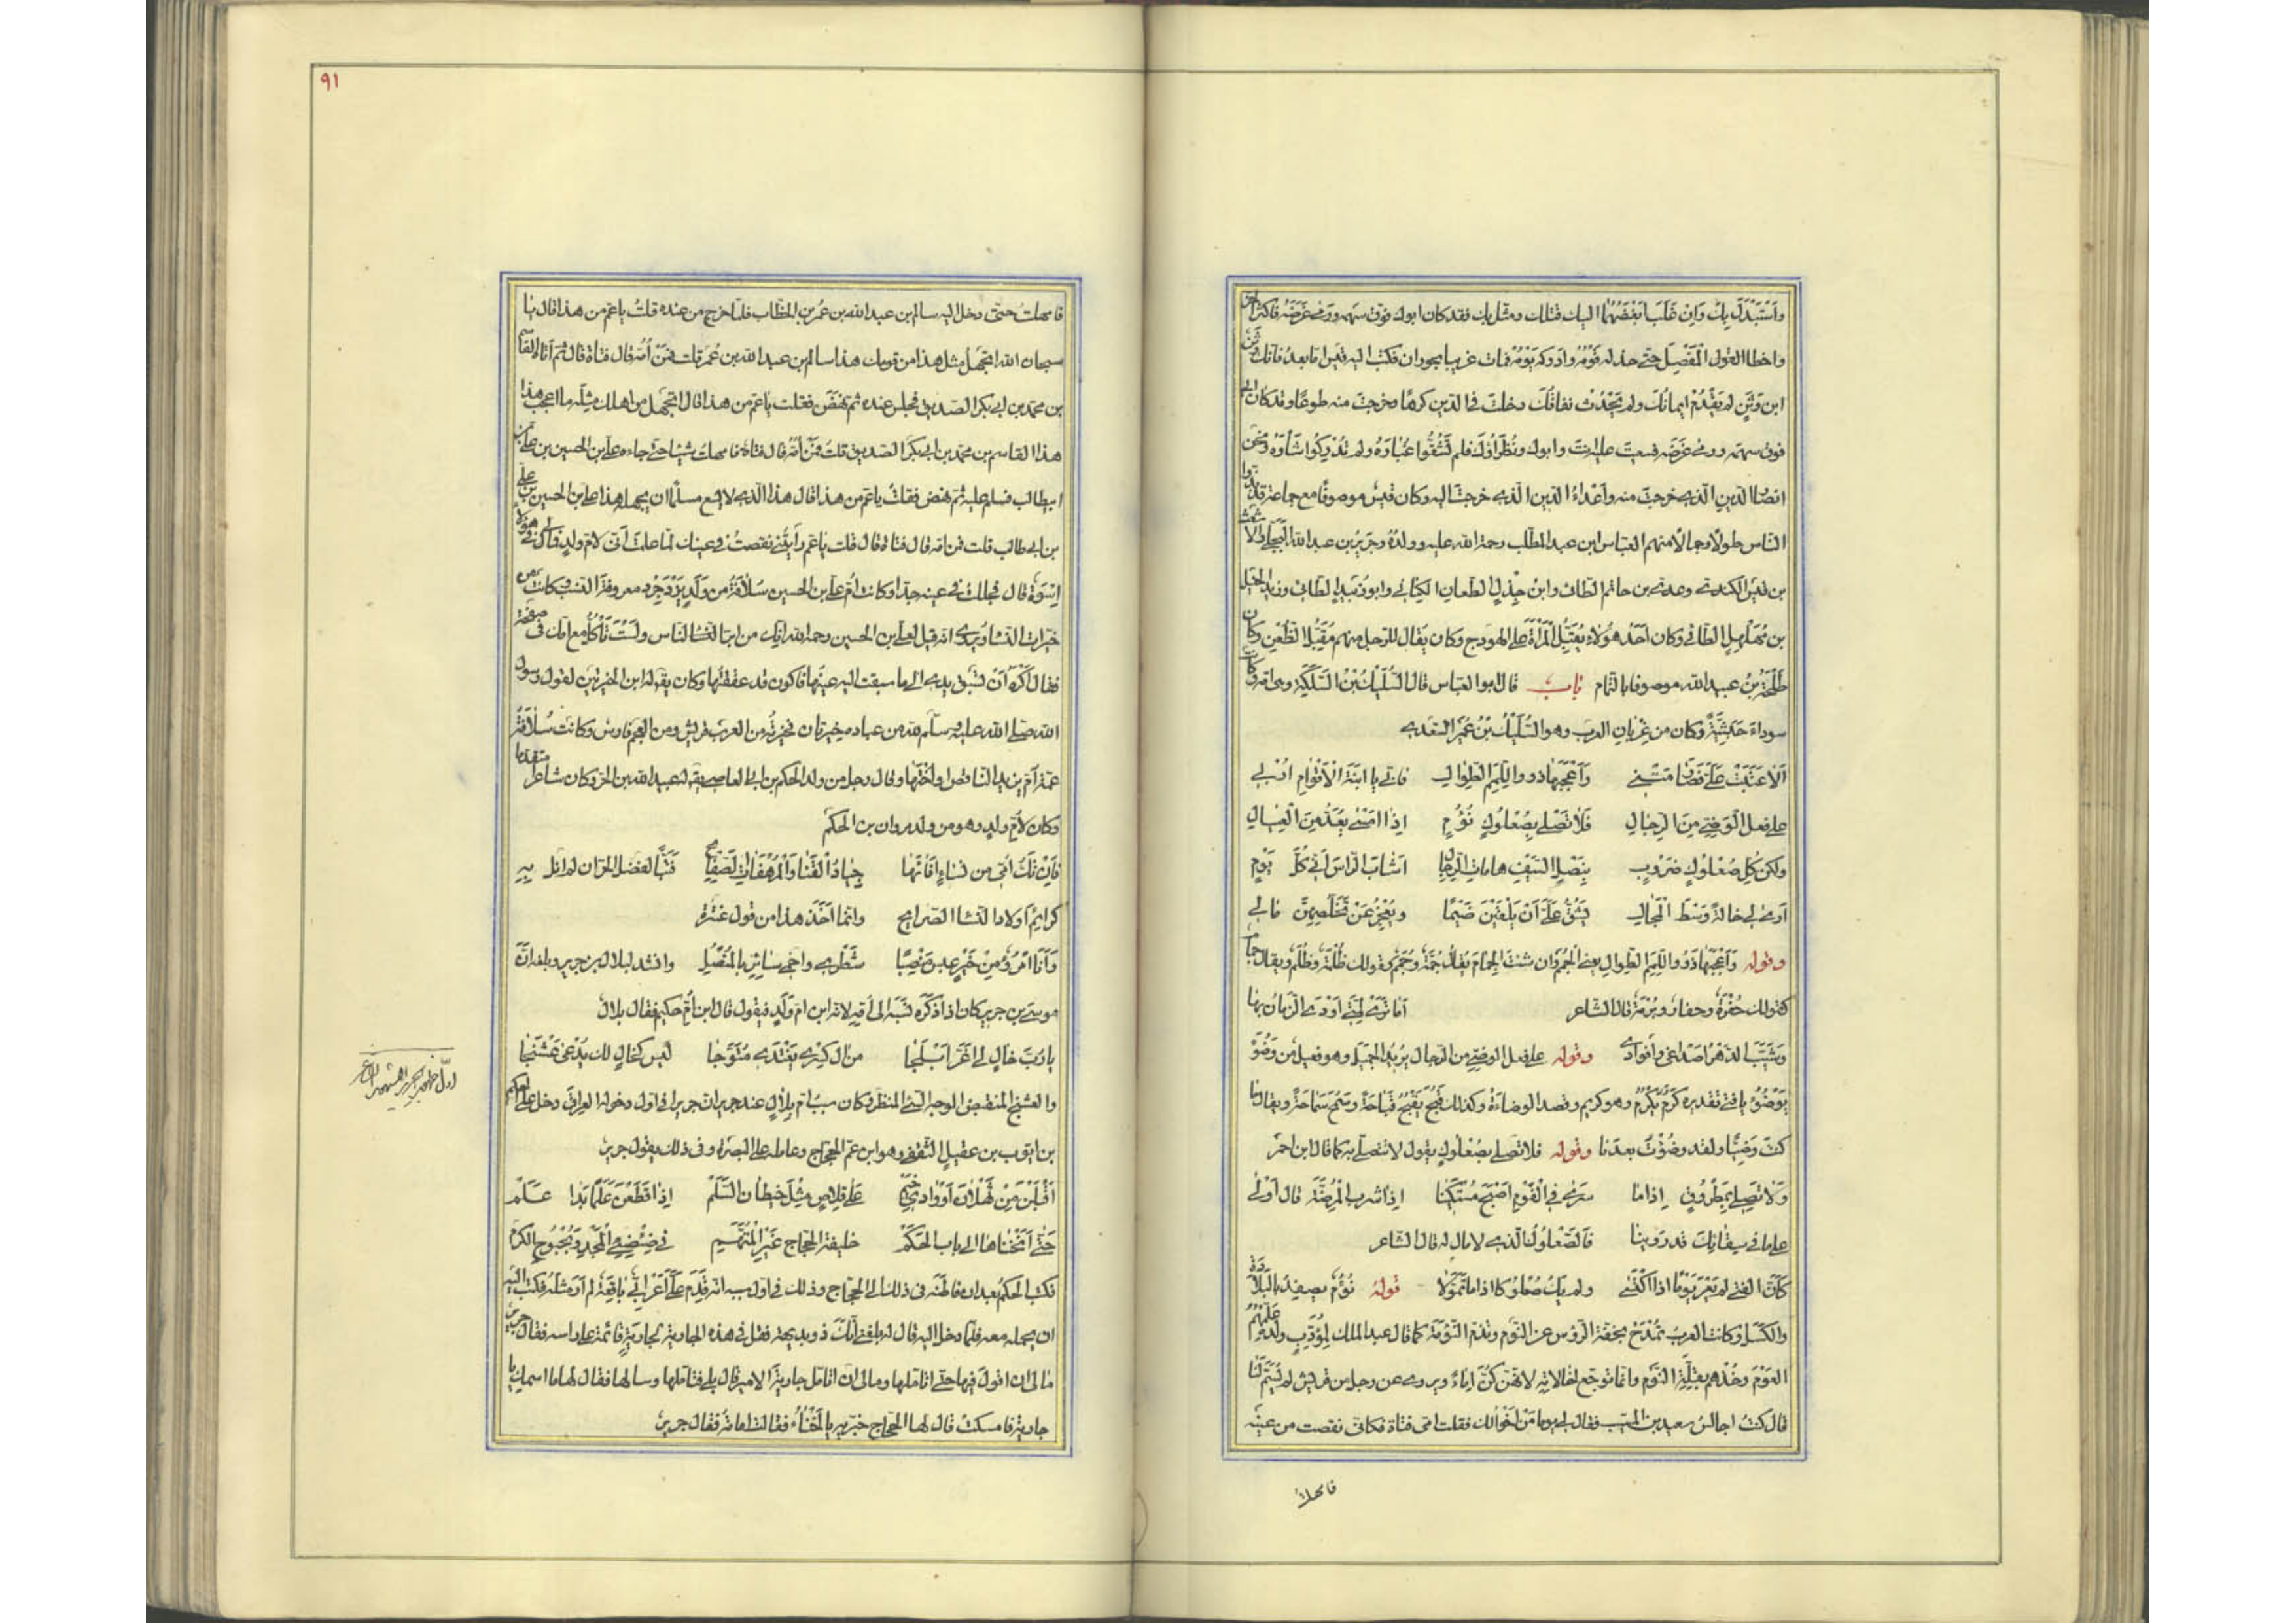 وَاسْتَبْدَلَ بِكَ وَاِنْ غَلَبَ اَبْغَضُهُمَا اليك قتلك ومثل بك فقد كان ابوك فوق سهمه ورمى غرضه فاكثر الحز
واخطا القول المفصل حتى خذله قومه وادركه يومه فمات غريبا بحوران فكتب اليه قيس اما بعد فانك وثن
ابن وثن لم يقدم ايمانك ولم يحدث نفاقك دخلت فى الدين كرها وخرجت منه طوعا وقد كان ابى
فوق سهمه ورمى غرضه فسعيت عليه انت وابوك ونظراؤك فلم تشقوا غباره ولم تدركوا شاوه ونحن
انصار الدين الذى خرجت منه واعداء الدين الذى خرجت اليه وكان قيس موصوفا مع جماعة قد بذوا
الناس طولا وجمالا منهم العباس ابن عبد المطلب رحمة الله عليه وولده وجرير بن عبد الله البجلى والاشعث
بن قيس الكندى وعدى بن حاتم الطائى وابن جذل الطعان الكنانى وابو زبيد الطائى وزيد الخيل
بن مهلهل الطائى وكان احد هؤلاء يقبل المرأة على الهودج وكان يقال للرجل منهم مقبل الظعن وكان
طلحة بن عبيد الله موصوفا بالتمام باب قال ابو العباس قال السليك بن السلكة وهى امه وكانت
سوداء حبشية وكان من غربان العرب وهو السليك بن عمير السعدى
الا عتبت على فصارمتنى واعجبها ذوو اللمم الطوال فانى يا ابنة الاقوام اربى
على فعل الوضى من الرجال فلا تصلى بصعلوك نؤوم اذا امسى يعد من العيال
ولكن كل صعلوك ضروب بنصل السيف هامات الرجال اشاب الراس انى كل يوم
ارى لى خالة وسط الرحال يشق على ان يلقين ضيما ويعجز عن تخلصهن مالى
وقوله واعجبها ذوو اللمم الطوال يعنى الجمم وان شئت الجمام يقال جمة وجمم كقولك ظلمة وظلم ويقال جمام
كقولك حفرة وحفار وبرمة قال الشاعر اما ترى لمتى اودى الزمان بها
وشيب الدهر اصداغى وافوادى وقوله على فعل الوضى من الرجال يريد الجميل وهو فعيل من وضؤ
يوضؤ يا فتى تقديره كرم يكرم وهو كريم ومصدره الوضاءة وكذلك قبح يقبح قباحة وسمح سماحة ويقال ما
كنت وضيا ولقد وضؤت بعدنا وقوله فلا تصلى بصعلوك يقول لا تتصلى به كما قال ابن احمر
ولا تصلى بمطروق اذا ما سرى فى القوم اصبح مستكينا اذا شرب المرضة قال اوكى
على ما فى سقائك قد روينا فالصعلوك الذى لا مال له قال الشاعر
كان الفتى لم يعر يوما اذا اكتسى ولم يك صعلوكا اذا ما تمولا قوله نؤوم يصفه بالبلادة
والكسل وكانت العرب تمدح بخفة الرؤس عن النوم وتذم النومة كما قال عبد الملك لمؤدب ولده علمهم
العوم وخذهم بقلة النوم وانما توجع لخالاته لانهن كن اماء ويروى عن رجل من قريش لم يسم لنا
قال كنت اجالس سعيد بن المسيب فقال لى يوما من اخوالك فقلت امى فتاة فكانى نقصت من عينه
فامهلت
٩١
فامهلت حتى دخل اليه سالم بن عبد الله بن عمر بن الخطاب فلما خرج من عنده قلت يا عم من هذا قال يا
سبحان الله اتجهل مثل هذا من قومك هذا سالم بن عبد الله بن عمر قلت فمن امه قال فتاة قال ثم اتاه القاسم
بن محمد بن ابى بكر الصديق فجلس عنده ثم نهض فقلت يا عم من هذا قال اتجهل من اهلك مثله ما اعجب هذا
هذا القاسم بن محمد بن ابى بكر الصديق قلت فمن امه قال فتاة فامهلت شيئا حتى جاءه على بن الحسين بن على بن
ابيطالب فسلم عليه ثم نهض فقلت يا عم من هذا قال هذا الذى لا يسع مسلما ان يجهله هذا على بن الحسين بن على
بن ابى طالب قلت فمن امه قال فتاة قال قلت يا عم رايتنى نقصت فى عينك لما علمت انى لام ولد فما لى فى هؤلاء
اسوة قال فجللت فى عينه جدا وكانت ام على بن الحسين سلافة من ولد يزدجرد معروفة النسب وكانت من
خيرات النساء ويروى انه قيل لعلى بن الحسين رحمه الله انك من ابر الناس ولست تاكل مع امك فى صحفة
فقال اكره ان تسبق يدى الى ما سبقت اليه عينها فاكون قد عققتها وكان يقال له ابن الخيرتين لقول رسول
الله صلى الله عليه وسلم لله من عباده خيرتان فخيرته من العرب قريش ومن العجم فارس وكانت سلافة
عمة ام يزيد الناقص او اختها وقال رجل من ولد الحكم بن ابى العاصى يقال له عبيد الله بن الحر وكان شاعرا متقدما
وكان لام ولد وهو من ولد مروان بن الحكم
فان تك امى من نساء افاءها جياد القنا والمرهفات الصفايح فتبا لفضل الحر ان لم انل به
كرايم اولاد النساء الصرايح وانما اخذ هذا من قول عنترة
وانا امرؤ من خير عبس منصبا شطرى واحمى سايرى بالمنصل وانشد لبلال بن جرير وبلغه ان
موسى بن جرير كان اذا ذكره نسبه الى امه لانه ابن ام ولد فيقول قال ابن ام حكيم فقال بلال
يا رب خال لى اغر ابلجا من ال كسرى يغتدى متوجا ليس كخال لك يدعى عشنجا
والعشنج المتقبض الوجه السيئ المنظر وكان سبب ام بلال عند جرير ان جريرا فى اول دخوله العراق دخل على الحكم
بن ايوب بن عقيل الثقفى وهو ابن عم الحجاج وعامله على البصرة وفى ذلك يقول جرير
اقبلن من ثهلان او وادى خيم على قلاص مثل خيطان السلم اذا قطعن علما بدا علم
حتى انخناها الى باب الحكم خليفة الحجاج غير المتهم فى ضئضئ المجد وبحبوح الكرم
فكتب الحكم بعد ان فاطنه فى ذلك الى الحجاج وذلك فى اول سببه انه قدم على اعرابى باقعة لم ار مثله فكتب اليه
ان يحمله معه فلما دخل اليه قال له بلغنى انك ذو بديهة فقل فى هذه الجارية لجارية قائمة على راسه فقال جرير
ما لى ان اقول فيها حتى اتاملها وما لى ان اتامل جارية الامير قال بلى فتاملها وسالها فقال لها ما اسمك يا
جارية فامسكت قال لها الحجاج خبريه يا لخناء فقالت امامة فقال جرير